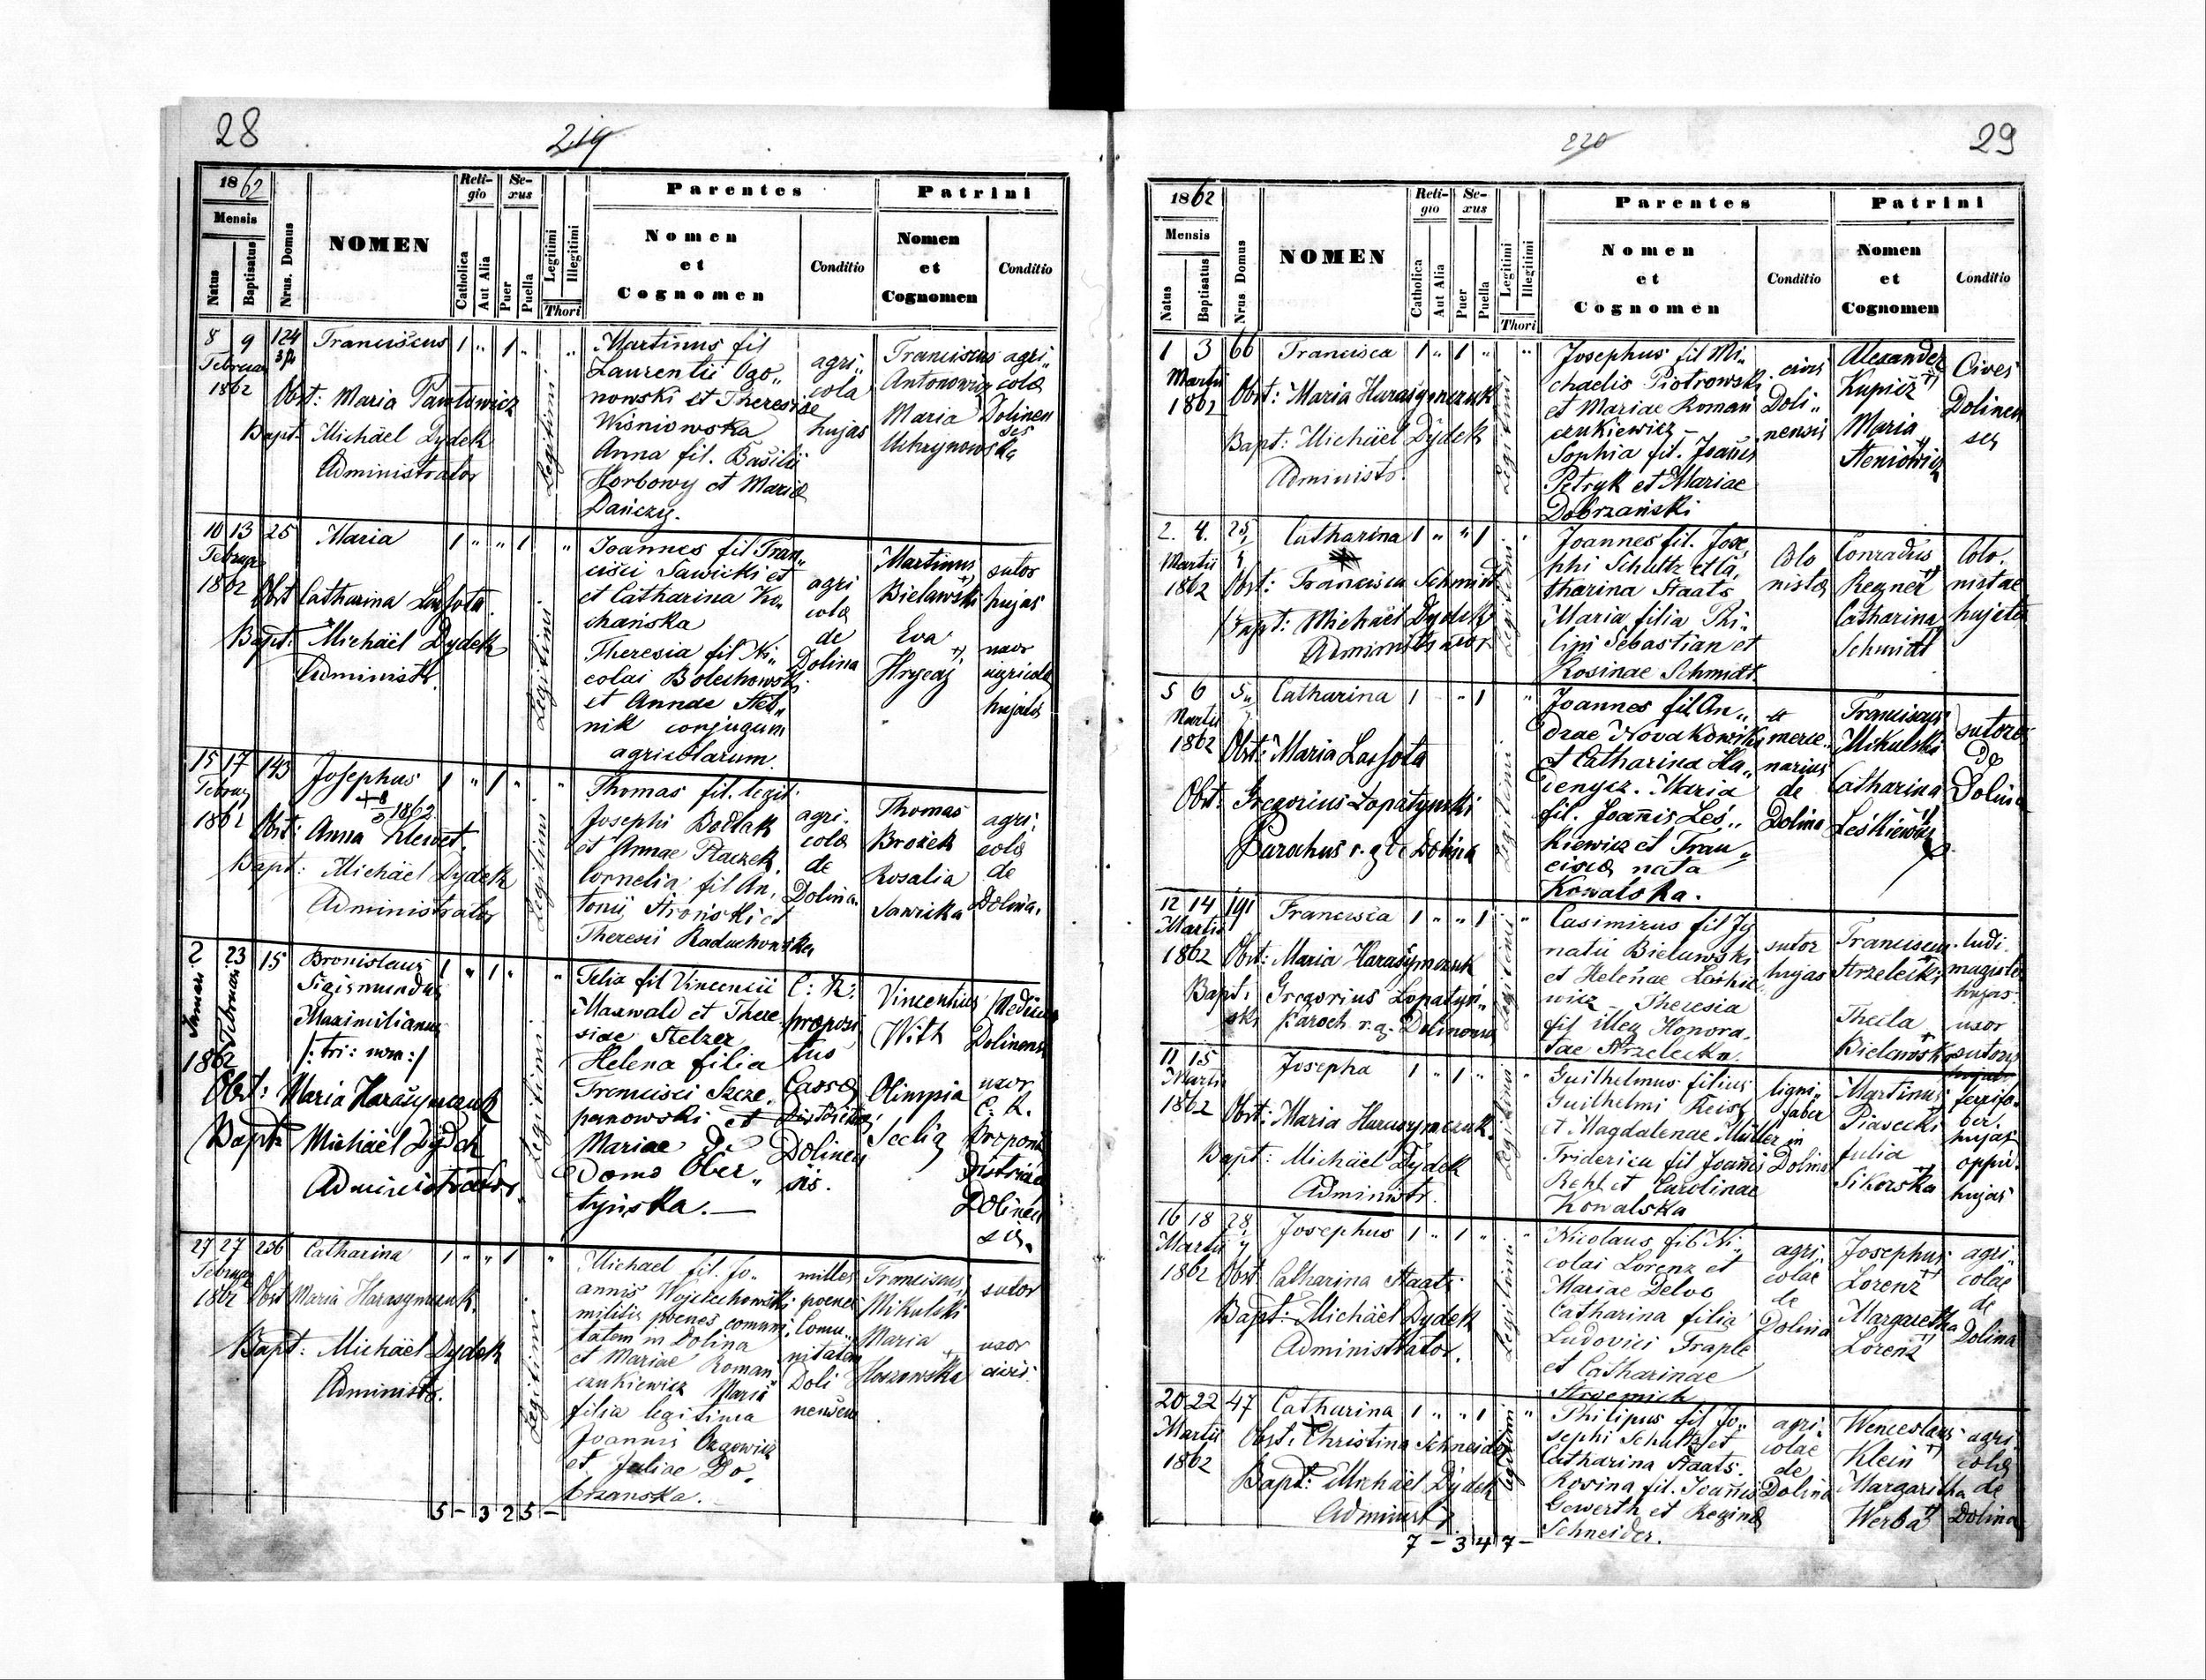 28
219
1862
Mensis
Natus
Baptisatus
Nrus. Domus
NOMEN
Reli-
gio
Catholica
Aut Alia
Se-
xus
Puer
Puella
Legitimi
Illegitimi
Thori
Parentes
Nomen
et
Cognomen
Conditio
Patrini
Nomen
et
Cognomen
Conditio
8 9 124 Franciscus 1 " 1 " "
Februar
1862
Obst: Maria Pawlowicz
Bapt: Michäel Dydek
Administrator
Legitimi
Martinus fil
Laurentii Ogo„
nowski et Theresiae
Wiśniowska
Anna fil. Basilii
Horbowy et Maria
Dańczy.
agri„
cola
hujas
Franciscus
Antonowicz
Maria
Uhrynowska
agri„
cola
Dolinen
ses
10 13 25 Maria 1 " " 1 "
Februar
1862
Obst Catharina Lassota
Bapt: Michäel Dydek
Administr.
Legitimi
Joannes fil Fran„
cisci Sawicki et
et Catharina Ko„
chańska
Theresia fil Ni„
colai Bolechowski
et Annae Steb„
nik conjugum
agricolarum.
agri
cola
de
Dolina
Martinus
Bielawski
Eva
Hrycaj
sutor
hujas
uxor
agricola
hujas
15 17 143 Josephus 1 " 1 " "
Februar
1862
Obst: Anna Klewet.
Bapt: Michäel Dydek
Administrator
Legitimi
Thomas fil. legit.
Josephi Bodlak
et Annae Ptaczek
Cornelia fil An„
tonii Stroński et
Theresii Raduchowska
agri„
cola
de
Dolina.
Thomas
Brożek
Rosalia
Sawicka
agri„
cola
de
Dolina.
2 23 15 Bronislaus 1 " 1 " "
Januari
Februari
1862
Sigismundus
Maximilianus
/: tri: nom :/
Obst: Maria Harasymczuk
Bapt: Michäel Dydek
Administrator.
Legitimi
Felix fil Vincentii
Maxwald et There„
siae Stelzer
Helena filia
Francisci Szcze„
panowski et
Mariae de
Domo Ober„
tyńska. —
C: R:
proposi
tus
Cassae
Districtus
Dolinen
sis.
Vincentius
With
Olimpia
Seelig
Medicus
Dolinensis
uxor
C. R.
Proposit
Districtus
Dolinen
sis.
27 27 236 Catharina 1 " " 1 "
Februar
1862
Obst Maria Harasymczuk.
Bapt: Michäel Dydek
Administr.
Legitimi
Michael fil. Jo„
annis Wojciechowski
militis poenes comuni„
tatem in Dolina
et Mariae Roman
czukiewicz Maria
filia legitima
Joannis Czgowicz
et Juliae Do„
brzanska.
milles
poenes
Comu„
nitatem
Doli
nensem
Franciscus
Mikulski
Maria
Hoszowska
sutor
uxor
civis.
5 – 3 2 5 –
220
29
1862
Mensis
Natus
Baptisatus
Nrus Domus
NOMEN
Reli-
gio
Catholica
Aut Alia
Se-
xus
Puer
Puella
Legitimi
Illegitimi
Thori
Parentes
Nomen
et
Cognomen
Conditio
Patrini
Nomen
et
Cognomen
Conditio
1 3 66 Francisca 1 " 1 " "
Martii
1862
Obst: Maria Harasymczuk
Bapt: Michäel Dydek
Administr.
Legitimi
Josephus fil Mi„
chaelis Piotrowski
et Mariae Roman
czukiewicz –
Sophia fil. Joanis
Petryk et Mariae
Dobrzański
civis
Doli„
nensis
Alexander
Kupicz
Maria
Steniowicz
Cives
Dolinen
ses
2. 4. 25, Catharina 1 " " 1 "
Martii
1862
Obst: Francisca Schmidt
Bapt: Michäel Dydek
Administrator
Legitimi
Joannes fil. Jose„
phi Schultz et Ca„
tharina Staats
Maria filia Phi„
lipi Sebastian et
Rosinae Schmidt.
Colo
nista
Conradus
Regner
Catharina
Schmidt
Colo„
nistae
hujates
5 6 5„ Catharina 1 " 1 "
Martii
1862
Obst: Maria Lassota
Obst: Gregorius Lopatynski
Parochus r. g. de Dolina
Legitimi
Joannes fil An„
dreae Novakowski
et Catharina Ha„
denycz. Maria
fil. Joanis Leś„
kiewicz et Fran„
cisca nata
Kowalska.
merce„
narius
de
Dolina
Franciscus
Mikulski
Catharina
Leśkiewicz
sutores
de
Dolina
12 14 191 Francisca 1 " " 1 "
Martii
1862
Obst: Maria Harasymczuk
Bapt: Gregorius Lopatyń„
ski Paroch r. g. Dolinensis
Legitimi
Casimirus fil Jg
natii Bielawski
et Helenae Laskie„
wicz – Theresia
fil illeg Honora„
tae Strzelecka.
sutor
hujas
Franciscus
Strzelecki
Thecla
Bielawska
ludi„
magister
hujas.
uxor
sutoris
11 15 Josepha 1 " 1 " "
Martii
1862
Obst: Maria Harasymczuk.
Bapt: Michäel Dydek
Administr.
Legitimi
Guilhelmus filius
Guilhelmi Reisz
et Magdalenae Müller
Friderica fil Joanis
Rehl et Carolinae
Kowalska
ligni„
faber
in
Dolina
Martinus
Piasecki
Julia
Sikorska
ferrifa„
ber.
hujas
oppid.
hujas
16 18 28, Josephus 1 " 1 " "
Martii
1862
Obst Catharina Staats
Bapt: Michäel Dydek
Administrator.
Legitimi
Nicolaus fil Ni„
colai Lorenz et
Mariae Delvo
Catharina filia
Ludovici Traple
et Catharinae
Stroemich
agri„
colae
de
Dolina
Josephus
Lorenz
Margaretha
Lorenz
agri„
colae
de
Dolina
20 22 47 Catharina 1 " " 1 "
Martii
1862
Obst: Christina Schneider
Bapt: Michäel Dydek
Administr.
Legitimi
Philipus fil Jo„
sephi Schultz et
Catharina Staats.
Rosina fil. Joannis
Gewerth et Regina
Schneider.
agri„
colae
de
Dolina
Wenceslaus
Klein
Margaretha
Werba
agri„
cola
de
Dolina
7 – 3 4 7 –